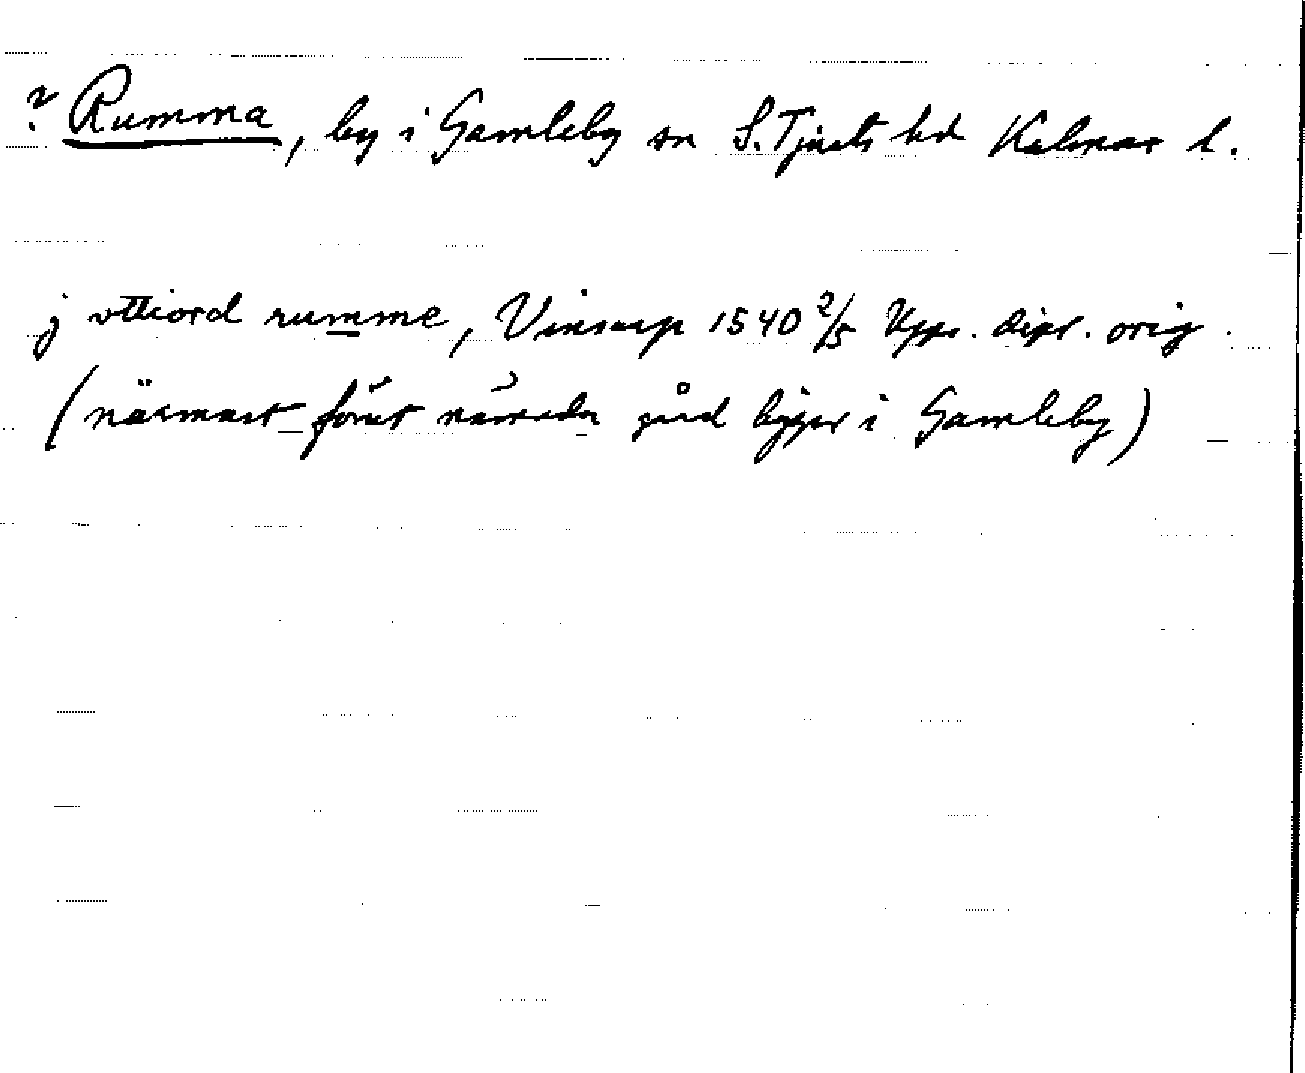 ? Rumma, by i Gamleby sn S. Tjusts hd Kalmar l.
j ottiord rumme, Vinsarp 1540 2/5 Upps. dipl. orig.
(närmast förut nämnda gård ligger i Gamleby)